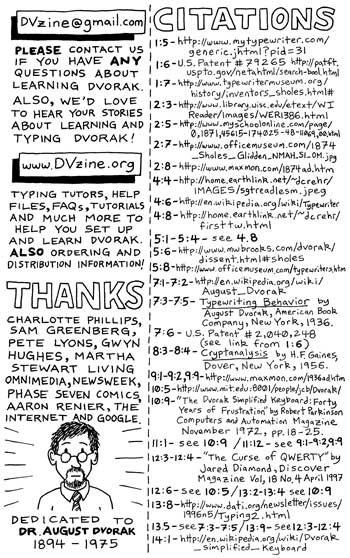 DVzine@gmail.com
PLEASE CONTACT US
IF YOU HAVE ANY
QUESTIONS ABOUT
LEARNING DVORAK.
ALSO, WE'D LOVE
TO HEAR YOUR STORIES
ABOUT LEARNING AND
TYPING DVORAK!
www.DVzine.org
TYPING TUTORS, HELP
FILES, FAQs, TUTORIALS
AND MUCH MORE TO
HELP YOU SET UP
AND LEARN DVORAK.
ALSO ORDERING AND
DISTRIBUTION INFORMATION!
THANKS
CHARLOTTE PHILLIPS,
SAM GREENBERG,
PETE LYONS, GWYN
HUGHES, MARTHA
STEWART LIVING
OMNIMEDIA, NEWSWEEK,
PHASE SEVEN COMICS,
AARON RENIER, THE
INTERNET AND GOOGLE.
DEDICATED TO
DR. AUGUST DVORAK
1894 - 1975
CITATIONS
1:5-http://www.mytypewriter.com/
generic.jhtml?pid=31
1:6-U.S. Patent #79265 http://patft.
uspto.gov/netahtml/search-bool.html
1:7-http://www.typewritermuseum.org/
history/inventors_sholes.html#
2:3-http://www.library.wisc.edu/etext/WI
Reader/Images/WER1386.html
2:5-http://www.myschoolonline.com/page/
0,1871,45615-174025-48-11069,00.html
2:7-http://www.officemuseum.com/1874
_Sholes_Glidden_NMAH_SI_OM.jpg
2:8-http://www.maxmon.com/1874ad.htm
4:4-http://home.earthlink.net/~dcrehr/
IMAGES/sgtreadlesm.jpeg
4:6-http://en.wikipedia.org/wiki/Typewriter
4:8-http://home.earthlink.net/~dcrehr/
firsttw.html
5:1-5:4- see 4.8
5:6-http://www.mwbrooks.com/dvorak/
dissent.html#sholes
5:8-http://www.officemuseum.com/typewriters.htm
7:1-7:2-http://en.wikipedia.org/wiki/
August_Dvorak
7:3-7:5- Typewriting Behavior by
August Dvorak, American Book
Company, New York, 1936.
7:6- U.S. Patent #2,040,248
(see link from 1:6)
8:3-8:4- Cryptanalysis by H.F. Gaines,
Dover, New York, 1956.
9:1-9:2,9:9-http://www.maxmon.com/1936ad.htm
10:5-http://www.mit.edu:8001/people/jcb/Dvorak/
10:9-"The Dvorak Simplified Keyboard: Forty
Years of Frustration" by Robert Parkinson
Computers and Automation Magazine
November 1972, pp. 18-25.
11:1- see 10:9 / 11:12- see 9:1-9:2,9:9
12:3-12:4- "The Curse of QWERTY" by
Jared Diamond, Discover
Magazine Vol, 18 No, 4 April 1997
12:6- see 10:5/13:2-13:4 see 10:9
13:8-http://www.dati.org/newsletter/issues/
1996n5/Typing2.html
13.5 see 7:3-7:5/13:9- see 12:3-12:4
14:1- http://en.wikipedia.org/wiki/Dvorak
_simplified_Keyboard